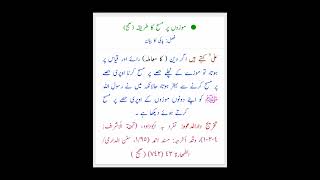 موزوں پر مسح کا طریقہ (صحیح)
فصل: پاکی کا بیان
علیؓ کہتے ہیں اگر دین (کا معاملہ) رائے اور قیاس پر
ہوتا تو موزے کے نچلے حصے پر مسح کرنا اوپری حصے پر
مسح کرنے سے بہتر ہوتا، حالانکہ میں نے رسول اللہ
ﷺ کو اپنے دونوں موزوں کے اوپری حصے پر مسح
کرتے ہوئے دیکھا ہے ۔
تخریج دارالدعوہ: تفرد بہ ابوداود، (تحفۃ الأشراف:
۱۰۲۰۴)، وقد أخرجہ: مسند احمد (۱/۹۵)، سنن الدارمی/
الطہارۃ ۴۳ (۷۴۲) (صحیح)